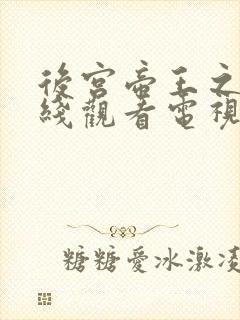 後宮帝王之
綫觀看電視
糖糖愛冰激凌